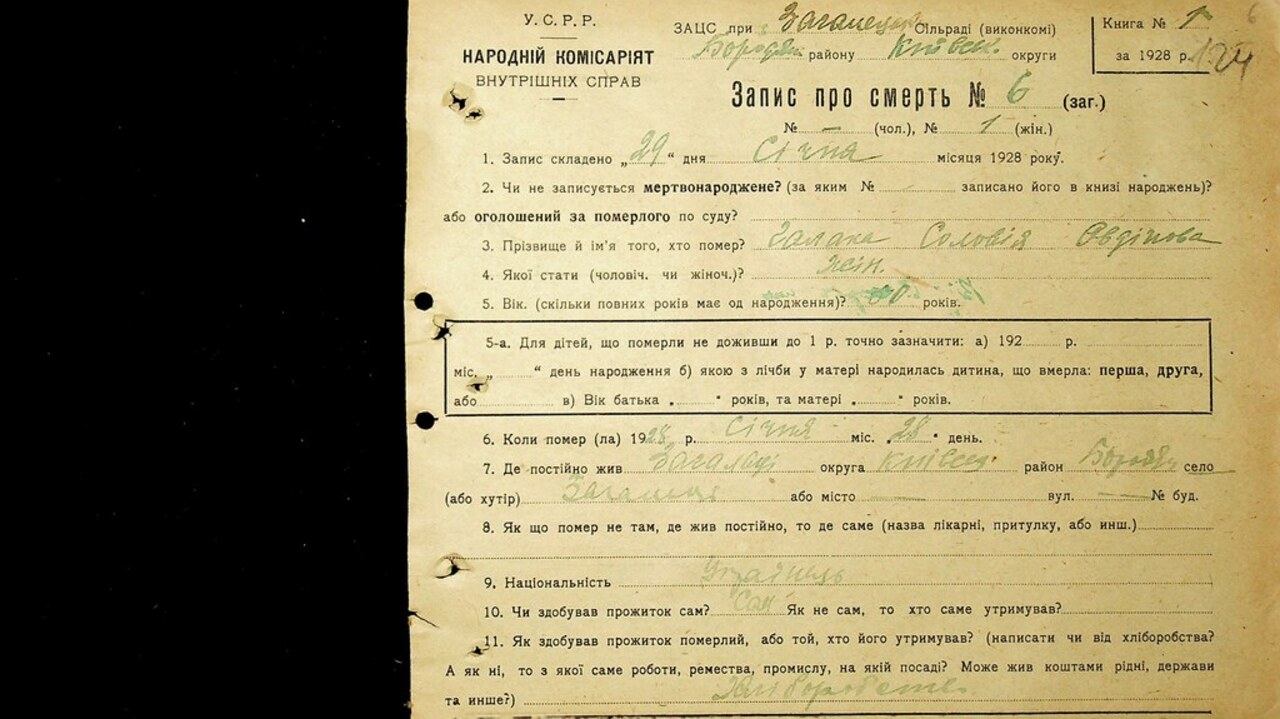 У. С. Р. Р.
НАРОДНІЙ КОМІСАРІЯТ
ВНУТРІШНІХ СПРАВ
ЗАЦС при Сільраді (виконкомі)
району Київськ округи
Книга № 1
за 1928 р.
Запис про смерть № 6 (заг.)
№ — (чол.), № 1 (жін.)
1. Запис складено „29“ дня Січня місяця 1928 року.
2. Чи не записується мертвонароджене? (за яким № записано його в книзі народжень)?
або оголошений за померлого по суду?
3. Прізвище й ім'я того, хто помер?
4. Якої стати (чоловіч. чи жіноч.)? жін.
5. Вік. (скільки повних років має од народження)? років.
5-а. Для дітей, що померли не доживши до 1 р. точно зазначити: а) 192 р.
міс. „ “ день народження б) якою з лічби у матері народилась дитина, що вмерла: перша, друга,
або в) Вік батька „ “ років, та матері „ “ років.
6. Коли помер (ла) 1928 р. Січня міс. „28“ день.
7. Де постійно жив округа район село
(або хутір) або місто — вул. — № буд.
8. Як що помер не там, де жив постійно, то де саме (назва лікарні, притулку, або инш.)
9. Національність
10. Чи здобував прожиток сам? Сам Як не сам, то хто саме утримував?
11. Як здобував прожиток померлий, або той, хто його утримував? (написати чи від хліборобства?
А як ні, то з якої саме роботи, ремества, промислу, на якій посаді? Може жив коштами рідні, держави
та инше?)